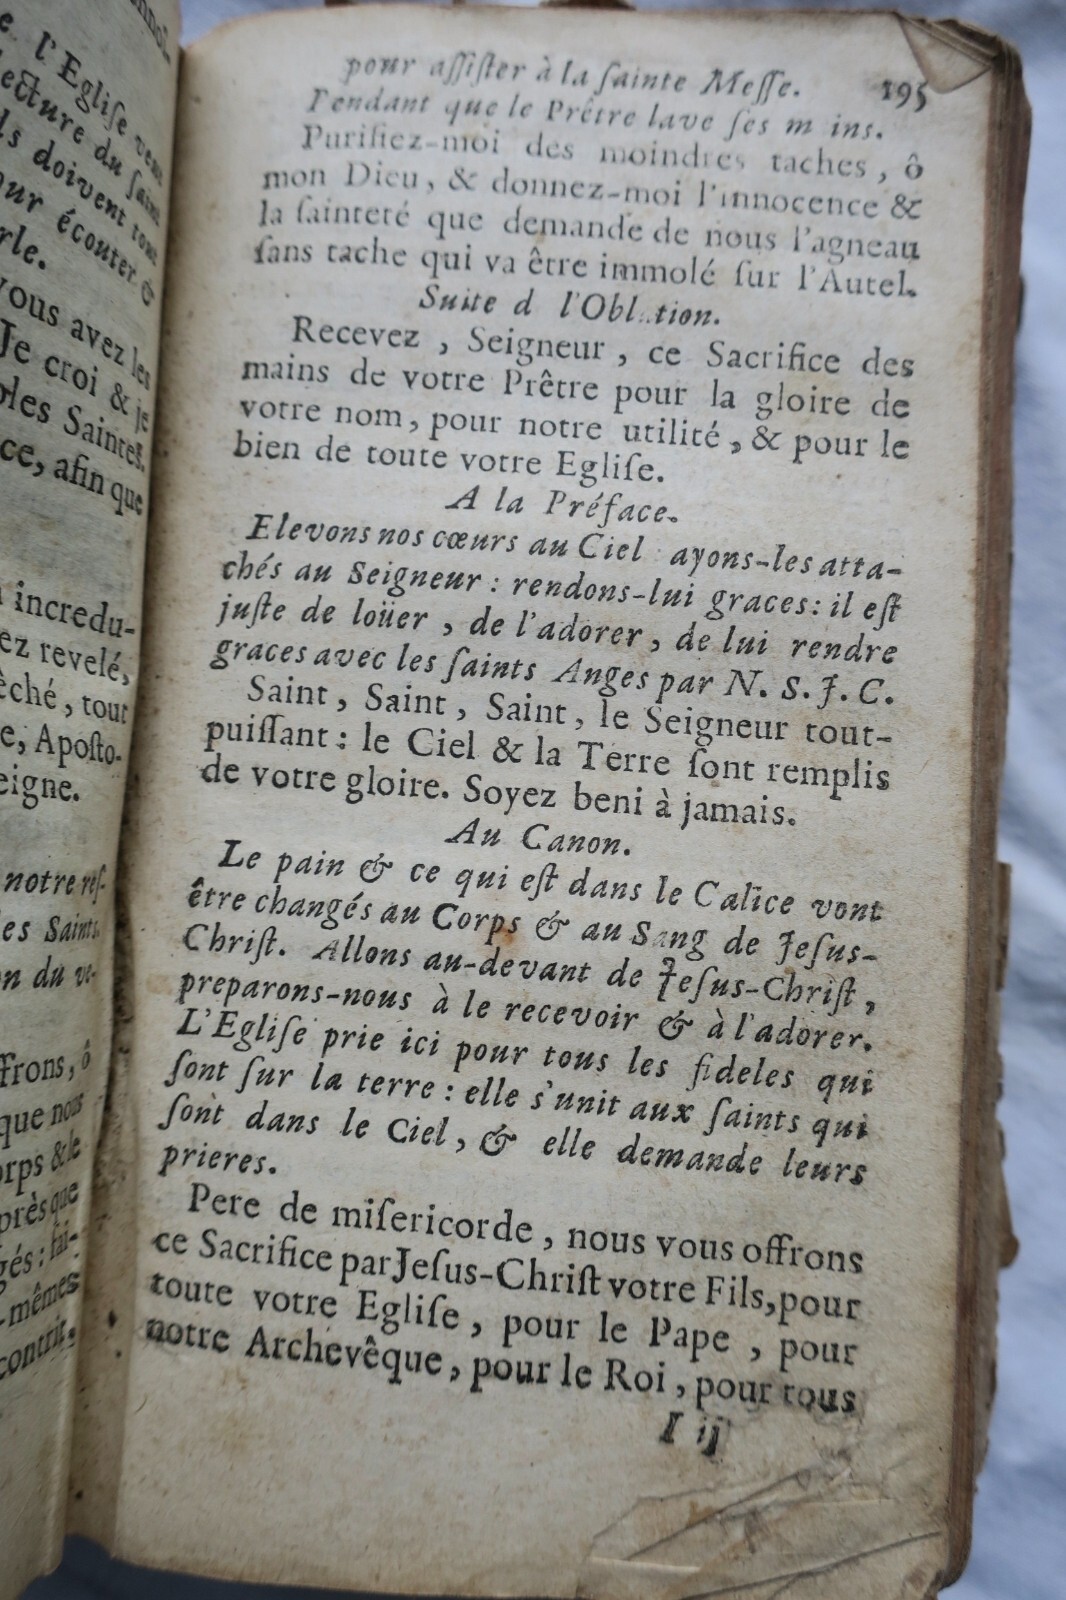 l'Eglise veut
lecture du saint
doivent tous
écouter &
vous avez les
Je croi & je
les Saintes
ce, afin que
incredu-
ez revelé,
êché, tout
e, Aposto-
eigne.
notre res-
les Saints.
on du vi-
ffrons, ô
que nous
orps & le
près que
gés : fai-
-mêmes
contrit.
pour aſſiſter à la ſainte Meſſe. 195
Pendant que le Prêtre lave ſes m ins.
Purifiez-moi des moindres taches, ô
mon Dieu, & donnez-moi l'innocence &
la ſainteté que demande de nous l'agneau
ſans tache qui va être immolé ſur l'Autel.
Suite d l'Obl tion.
Recevez, Seigneur, ce Sacrifice des
mains de votre Prêtre pour la gloire de
votre nom, pour notre utilité, & pour le
bien de toute votre Egliſe.
A la Préface.
Elevons nos cœurs au Ciel : ayons-les atta-
chés au Seigneur : rendons-lui graces : il eſt
juſte de loüer, de l'adorer, de lui rendre
graces avec les ſaints Anges par N. S. J. C.
Saint, Saint, Saint, le Seigneur tout-
puiſſant : le Ciel & la Terre ſont remplis
de votre gloire. Soyez beni à jamais.
Au Canon.
Le pain & ce qui eſt dans le Calice vont
être changés au Corps & au Sang de Jeſus-
Chriſt. Allons au-devant de Jeſus-Chriſt,
preparons-nous à le recevoir & à l'adorer.
L'Egliſe prie ici pour tous les fideles qui
ſont ſur la terre : elle s'unit aux ſaints qui
ſont dans le Ciel, & elle demande leurs
prieres.
Pere de miſericorde, nous vous offrons
ce Sacrifice par Jeſus-Chriſt votre Fils, pour
toute votre Egliſe, pour le Pape, pour
notre Archevêque, pour le Roi, pour tous
I ij